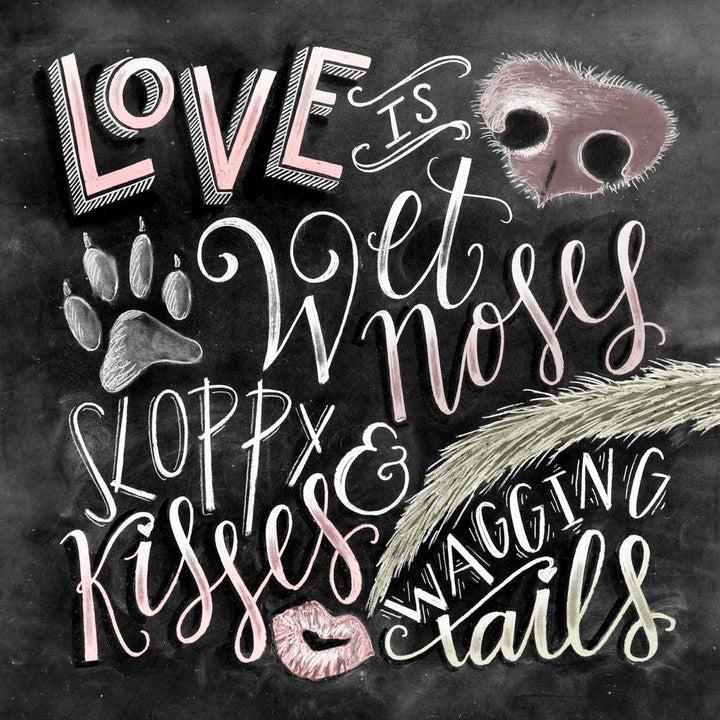 LOVE IS
Wet
noses
SLOPPY
Kisses &
WAGGING
tails